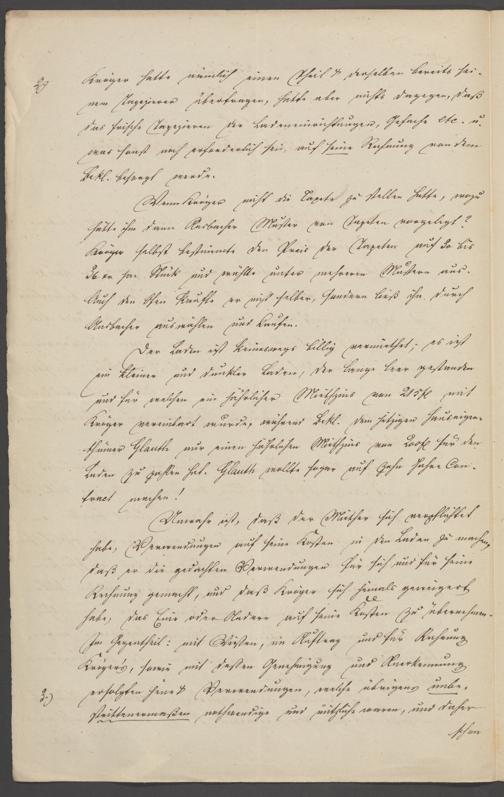 2) Kröger hatte nämlich einen Theil & derselben bereits sei-
nem Tapezierer übertragen, hatte aber nichts dagegen, daß
das frische Tapezieren der Ladeneinrichtungen, Gefache etc. u.
was sonst noch erforderlich sei, auf seine Rechnung von dem
Bekl. besorgt werde.
Wenn Kröger nicht die Tapete zu stellen hatte, wozu
hätte ihm dann Ansbacher Muster von Tapeten vorgelegt?
Kröger selbst bestimmte den Preis der Tapeten auf 30 bis
36 xr per Stück und wählte unter mehreren Mustern aus.
Auch den Ofen kaufte er nicht selber, sondern ließ ihn durch
Ansbacher auswählen und kaufen.
Der Laden ist keineswegs billig vermiethet; es ist
ein kleiner und dunkler Laden, der lange leer gestanden
und für welchen ein jährlicher Miethzins von 215 fl mit
Kröger vereinbart wurde, während Bekl. dem hiesigen Hauseigen-
thümer Glauth nur einen jährlichen Miethzins von 200 fl für den
Laden zu zahlen hat. Glauth wollte sogar auf zehn Jahre Con-
tract machen!
Unwahr ist, daß der Miether sich verpflichtet
habe, Verwendungen auf seine Kosten in den Laden zu machen,
daß er die gedachten Verwendungen für sich und für seine
Rechnung gemacht, und daß Kröger sich jemals geweigert
habe, das Eine oder Andere auf seine Kosten zu übernehmen.
Im Gegentheil: mit Wissen, im Auftrag und für Rechnung
Krögers, sowie mit dessen Genehmigung und Anerkennung
3.) erfolgten jene & Verwendungen, welche übrigens unbe-
strittenermaßen nothwendige und nützliche waren, und daher
schon